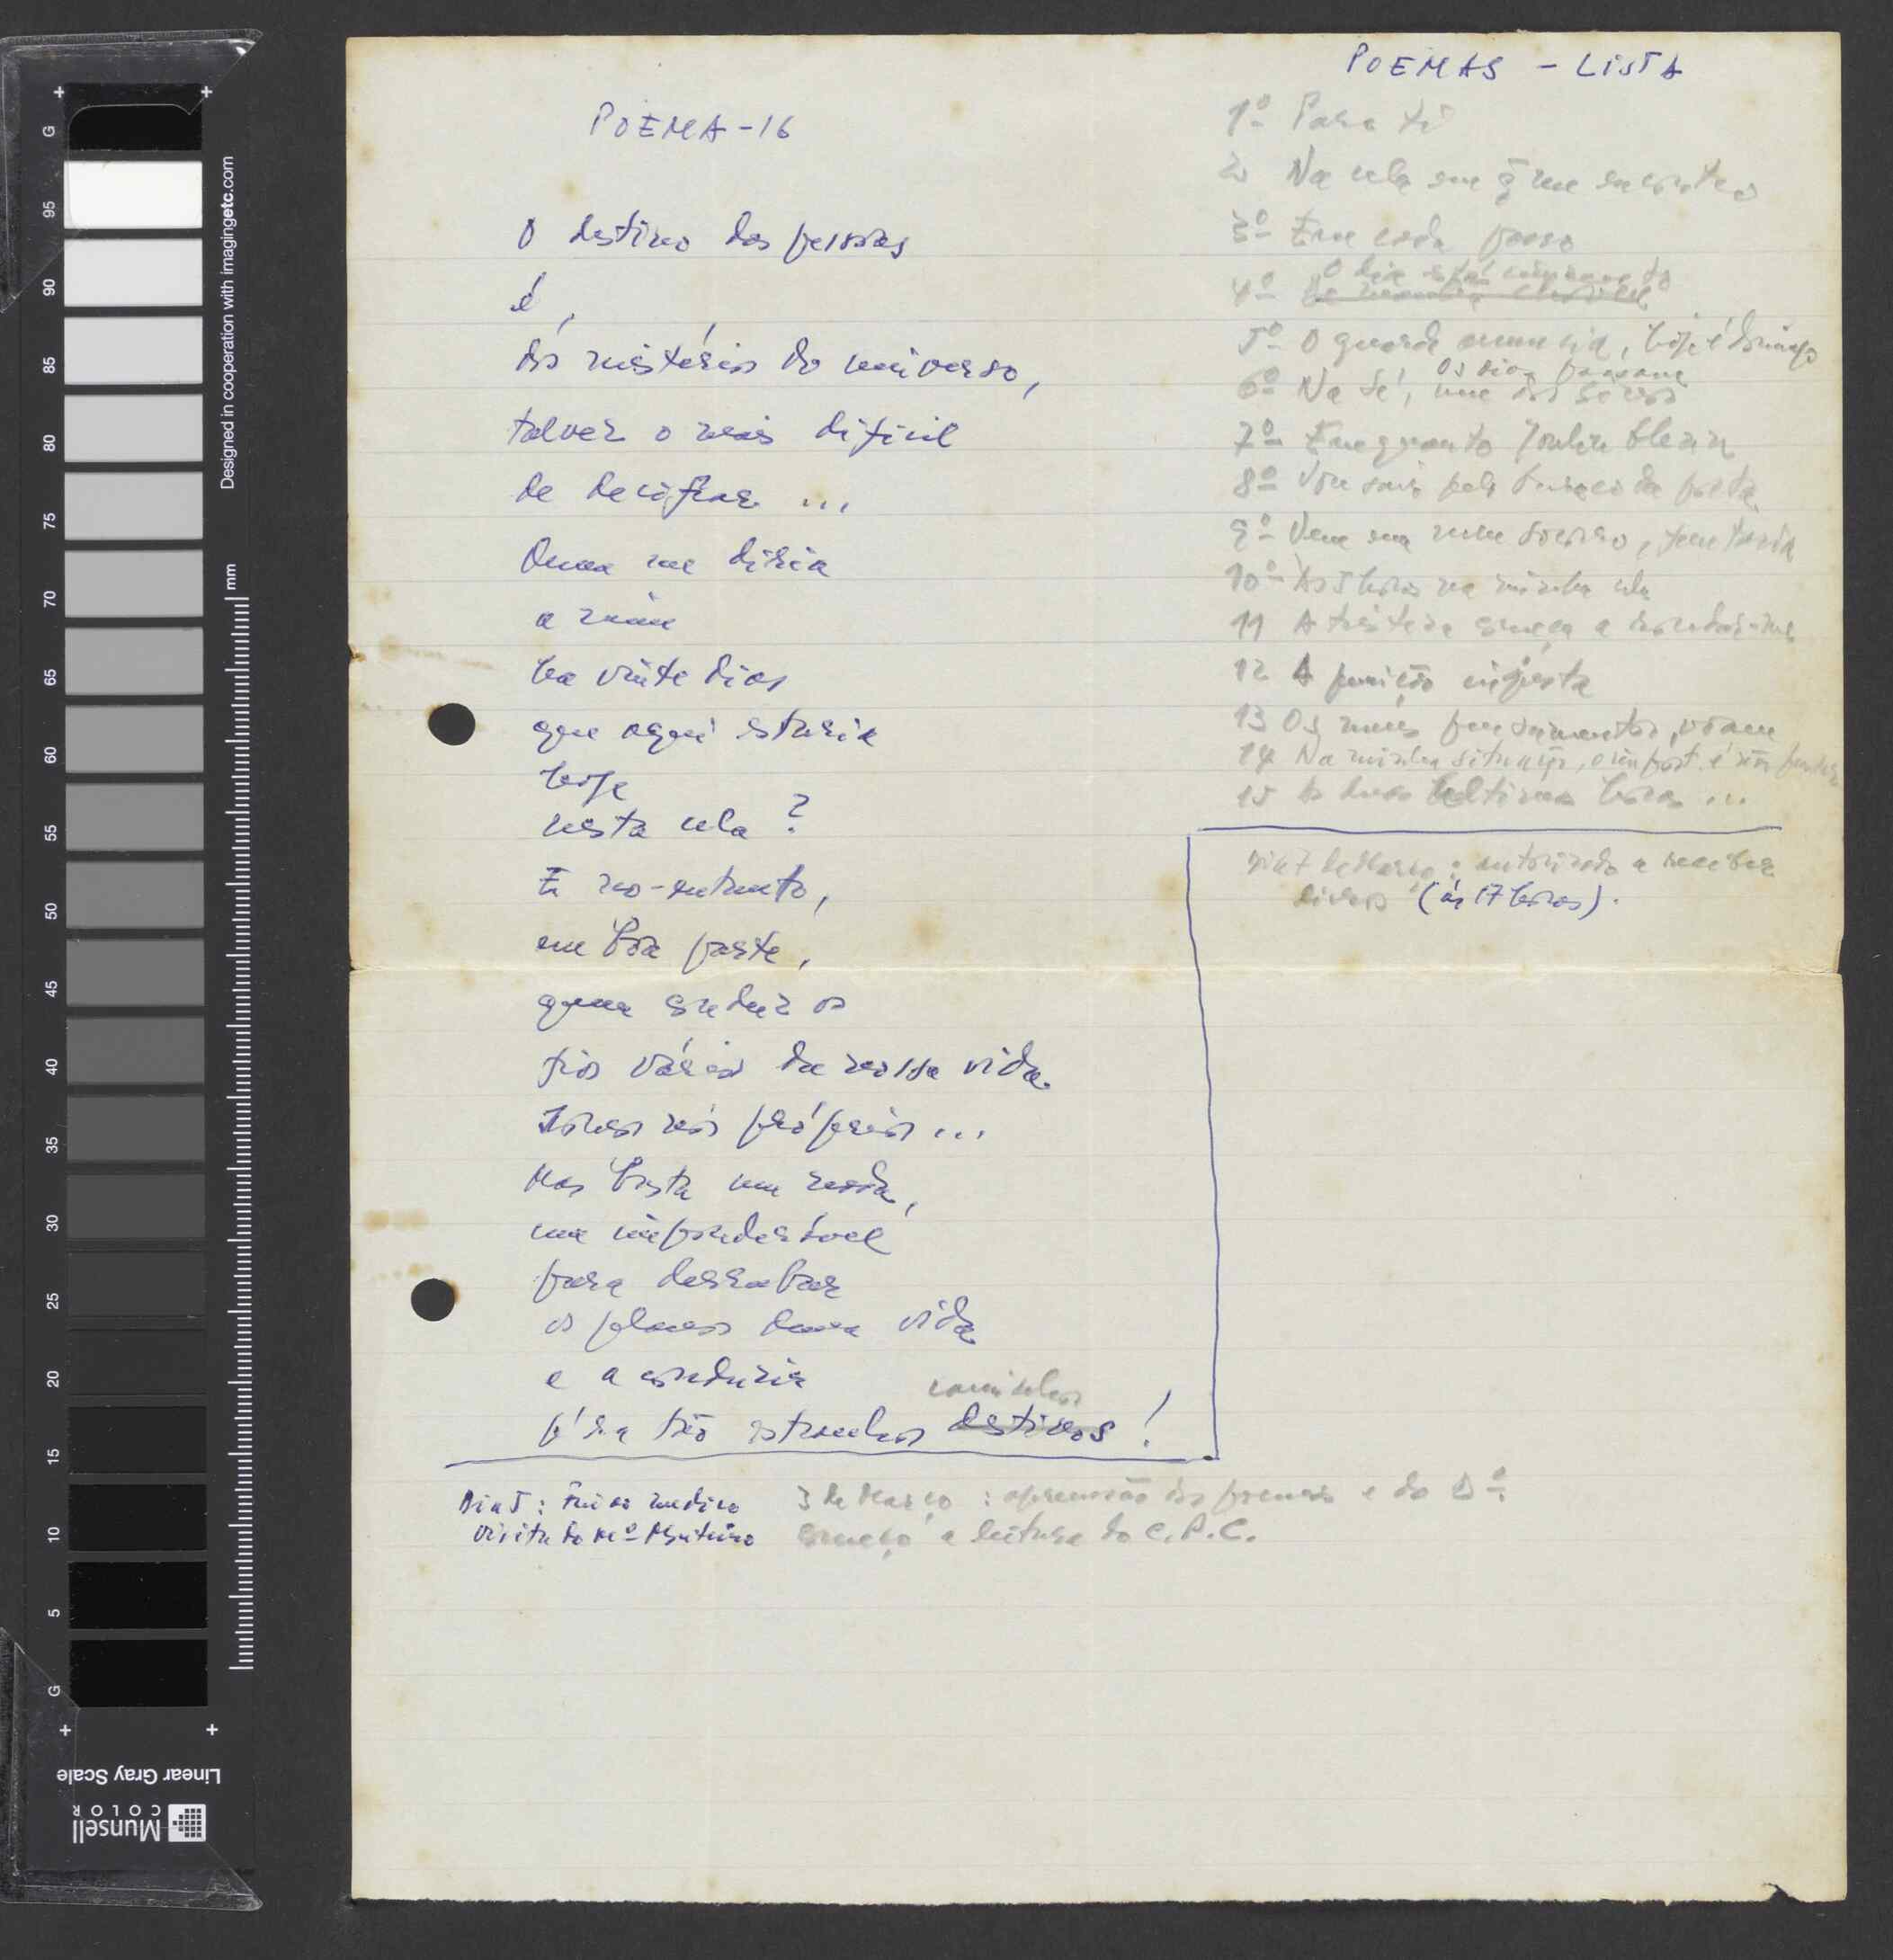 POEMA-16
O destino das pessoas
é,
dos mistérios do universo,
talvez o mais difícil
de decifrar ...
Quem me diria
a mim
ha vinte dias
que aqui estaria
hoje
nesta cela?
E no-entanto,
em boa parte,
quem conduz os
fios vários da nossa vida.
somos nós próprios ...
Mas basta um nada,
um imponderável
para derrubar
os planos duma vida
e a conduzir
caminhos
p'ra tão estranhos destinos!
Dia 5: Fui ao médico
Visita do Mº Monteiro
3 de Março: apreensão dos poemas e do
começo a leitura do C.P.C.
POEMAS - LISTA
1º Para ti
2º Na cela em q̃ me encontro
3º Em cada passo
O dia está cinzento
4º
5º O guarda anuncia, hoje é domingo
os dias passam
6º Na Sé, um dos sinos
7º Enquanto
8º Vou sair pelo buraco da porta
9º Vem em meu socorro, fantasia
10º As horas na minha cela
11 A tristeza começa a rondar-me
12 A punição injusta
13 Os meus pensamentos, voam
14 Na minha situação, o import. é não pensar
15 As duas últimas horas ...
Dia 7 de Março: autorizado a receber
livros (às 17 horas).
Designed in cooperation with imagingetc.com
mm
G 95 90 85 80 75 70 65 60 55 50 45 40 35 30 25 20 15 10 5 G
Linear Gray Scale
Munsell
COLOR